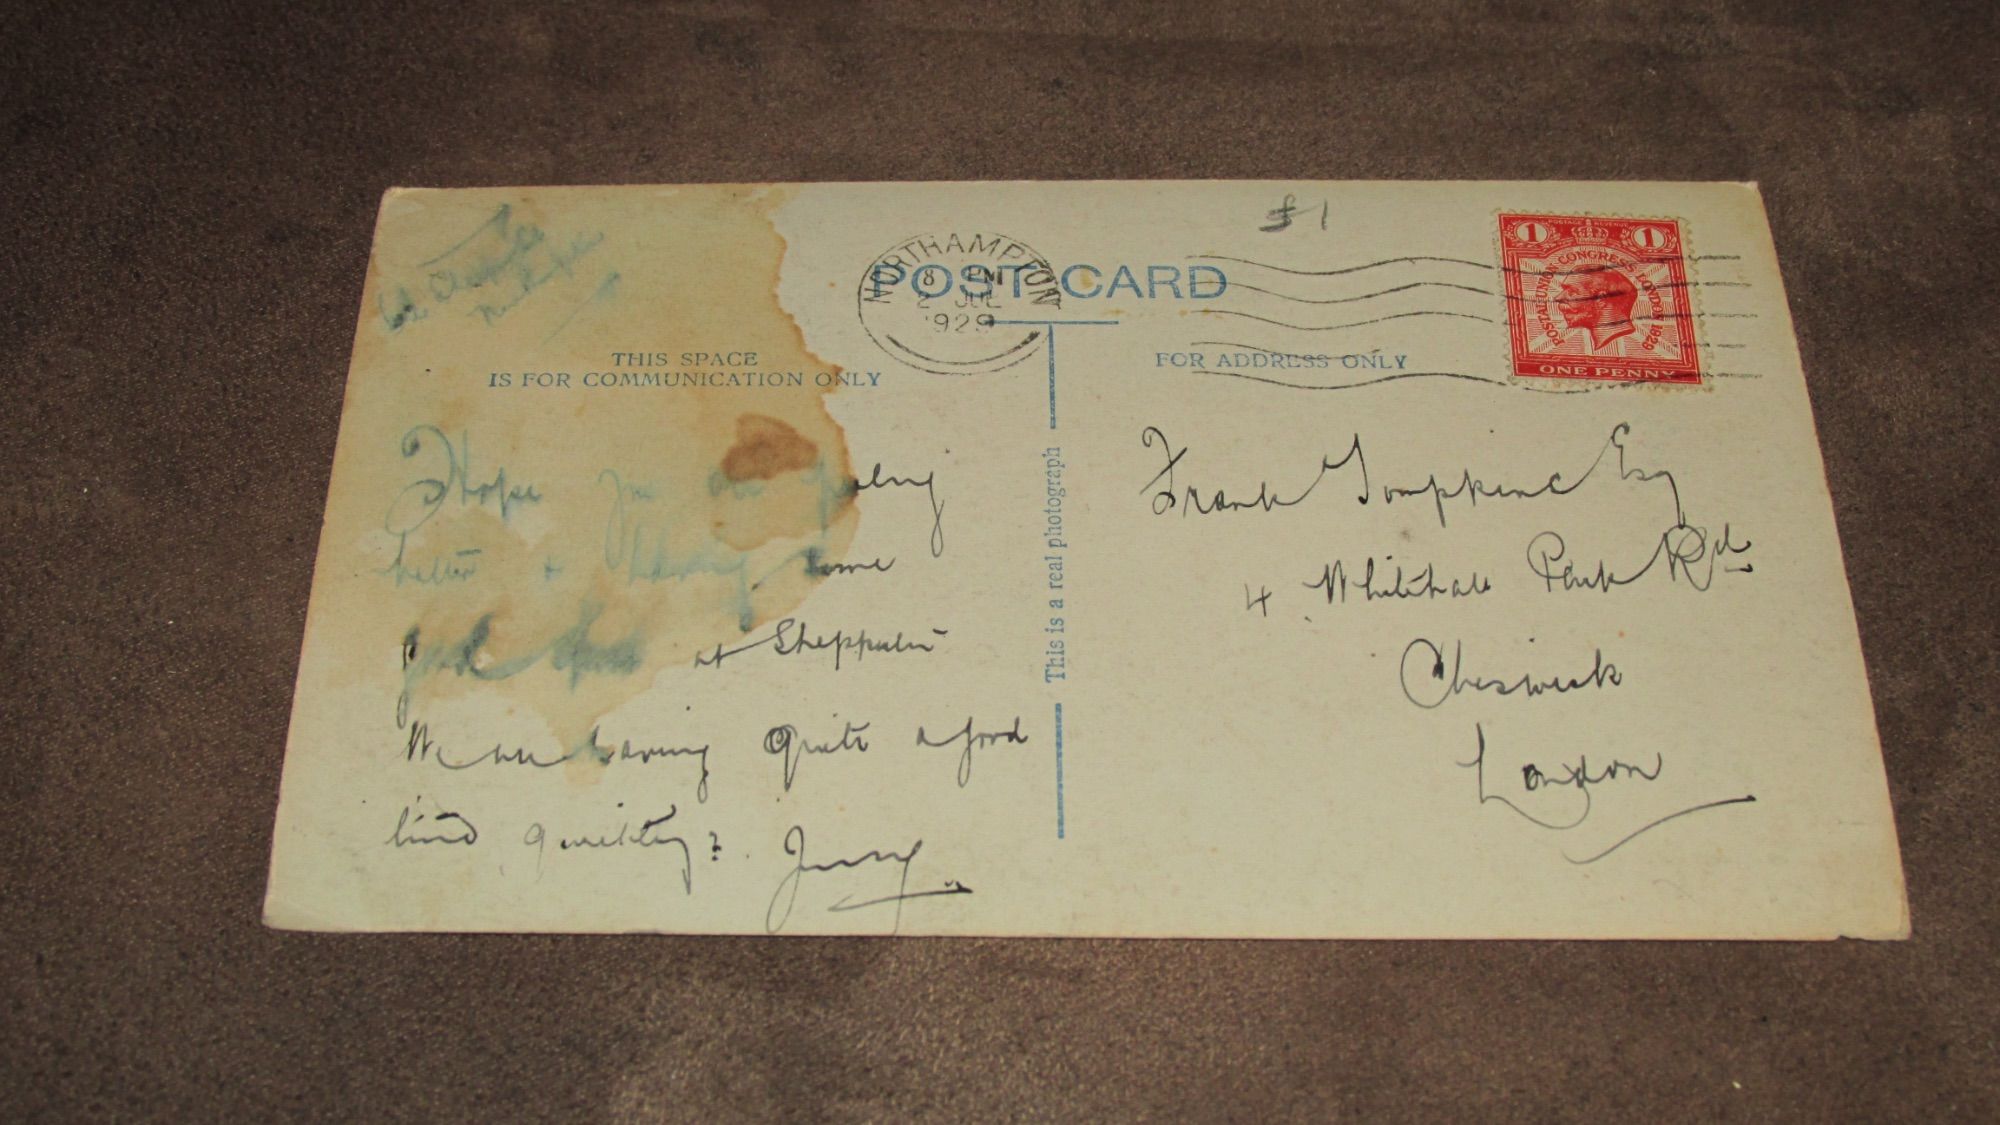 £1
NORTHAMPTON
8 PM
2 JUL
1929
POST CARD
1 POSTAGE REVENUE 1
POSTAL UNION CONGRESS LONDON 1929
ONE PENNY
THIS SPACE
IS FOR COMMUNICATION ONLY
Hope you are feeling
better + having some
good at
We are having Quite a good
time quickly?
This is a real photograph
FOR ADDRESS ONLY
Frank Tompkins Esq
4 Whitehall Park Rd
Chiswick
London